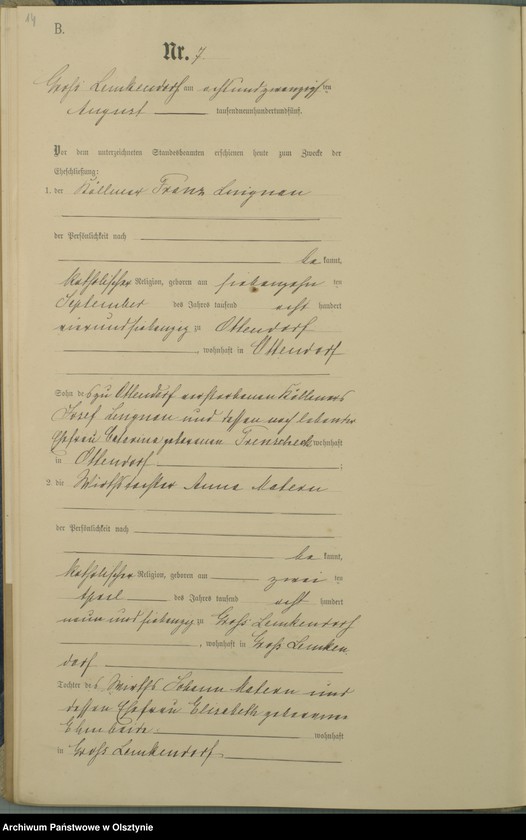 14
B.
Nr. 7
Groß Lemkendorf am achtundzwanzigsten
August tausendneunhundertundfünf.
Vor dem unterzeichneten Standesbeamten erschienen heute zum Zwecke der
Eheschließung:
1. der Köllmer Franz
der Persönlichkeit nach
be kannt,
katholischer Religion, geboren am siebenzehn ten
September des Jahres tausend acht hundert
vierundsiebenzig zu Ottendorf
, wohnhaft in Ottendorf
Sohn des zu Ottendorf verstorbenen Köllmers
Josef und dessen noch lebender
Ehefrau geborenen wohnhaft
in Ottendorf ;
2. die Wirthstochter Anna Matern
der Persönlichkeit nach
be kannt,
katholischer Religion, geboren am zwei ten
April des Jahres tausend acht hundert
neunundsiebenzig zu Groß Lemkendorf
, wohnhaft in Groß Lemken
dorf
Tochter des Wirths Johann Matern und
dessen Ehefrau Elisabeth geborenen
wohnhaft
in Groß Lemkendorf.
Archiwum Państwowe w Olsztynie